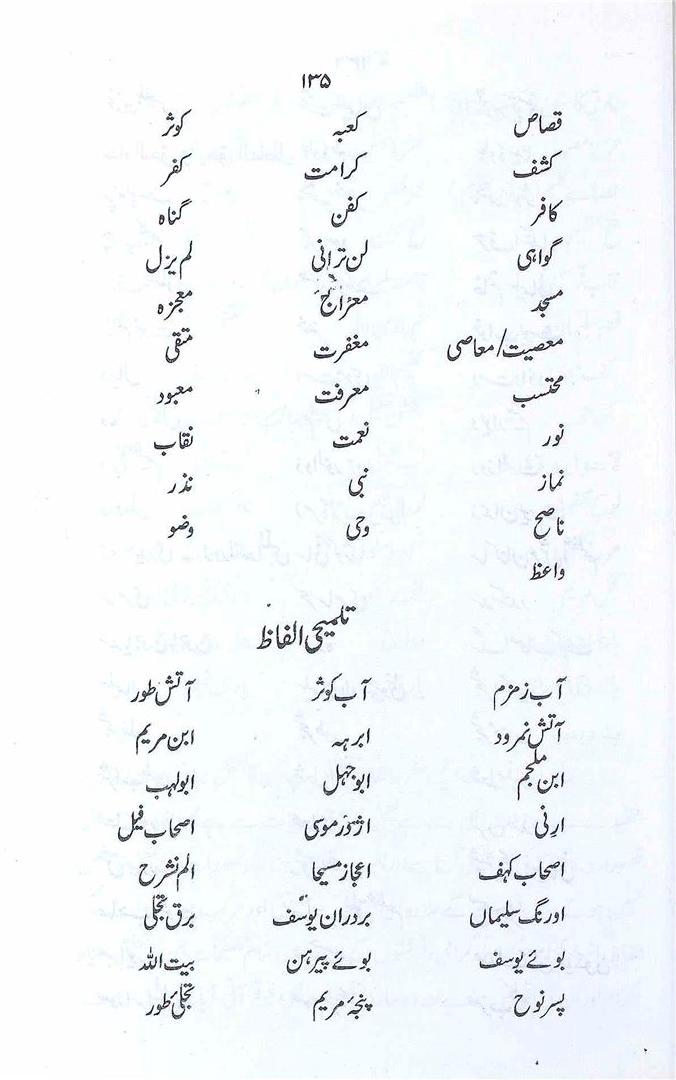 ۱۳۵
قصاص کعبہ کوثر
کشف کرامت کفر
کافر کفن گناہ
گواہی لن ترانی لم یزل
مسجد معراج معجزہ
معصیت/معاصی مغفرت متقی
محتسب معرفت معبود
نور نعمت نقاب
نماز نبی نذر
ناصح وحی وضو
واعظ
تلمیحی الفاظ
آب زمزم آب کوثر آتش طور
آتش نمرود ابرہہ ابن مریم
ابن ملجم ابوجہل ابولہب
ارنی اژدر موسی اصحاب فیل
اصحاب کہف اعجاز مسیحا الم نشرح
اورنگ سلیماں بردران یوسف برق تجلی
بوئے یوسف بوئے پیرہن بیت اللہ
پسر نوح پنجۂ مریم تجلیٔ طور